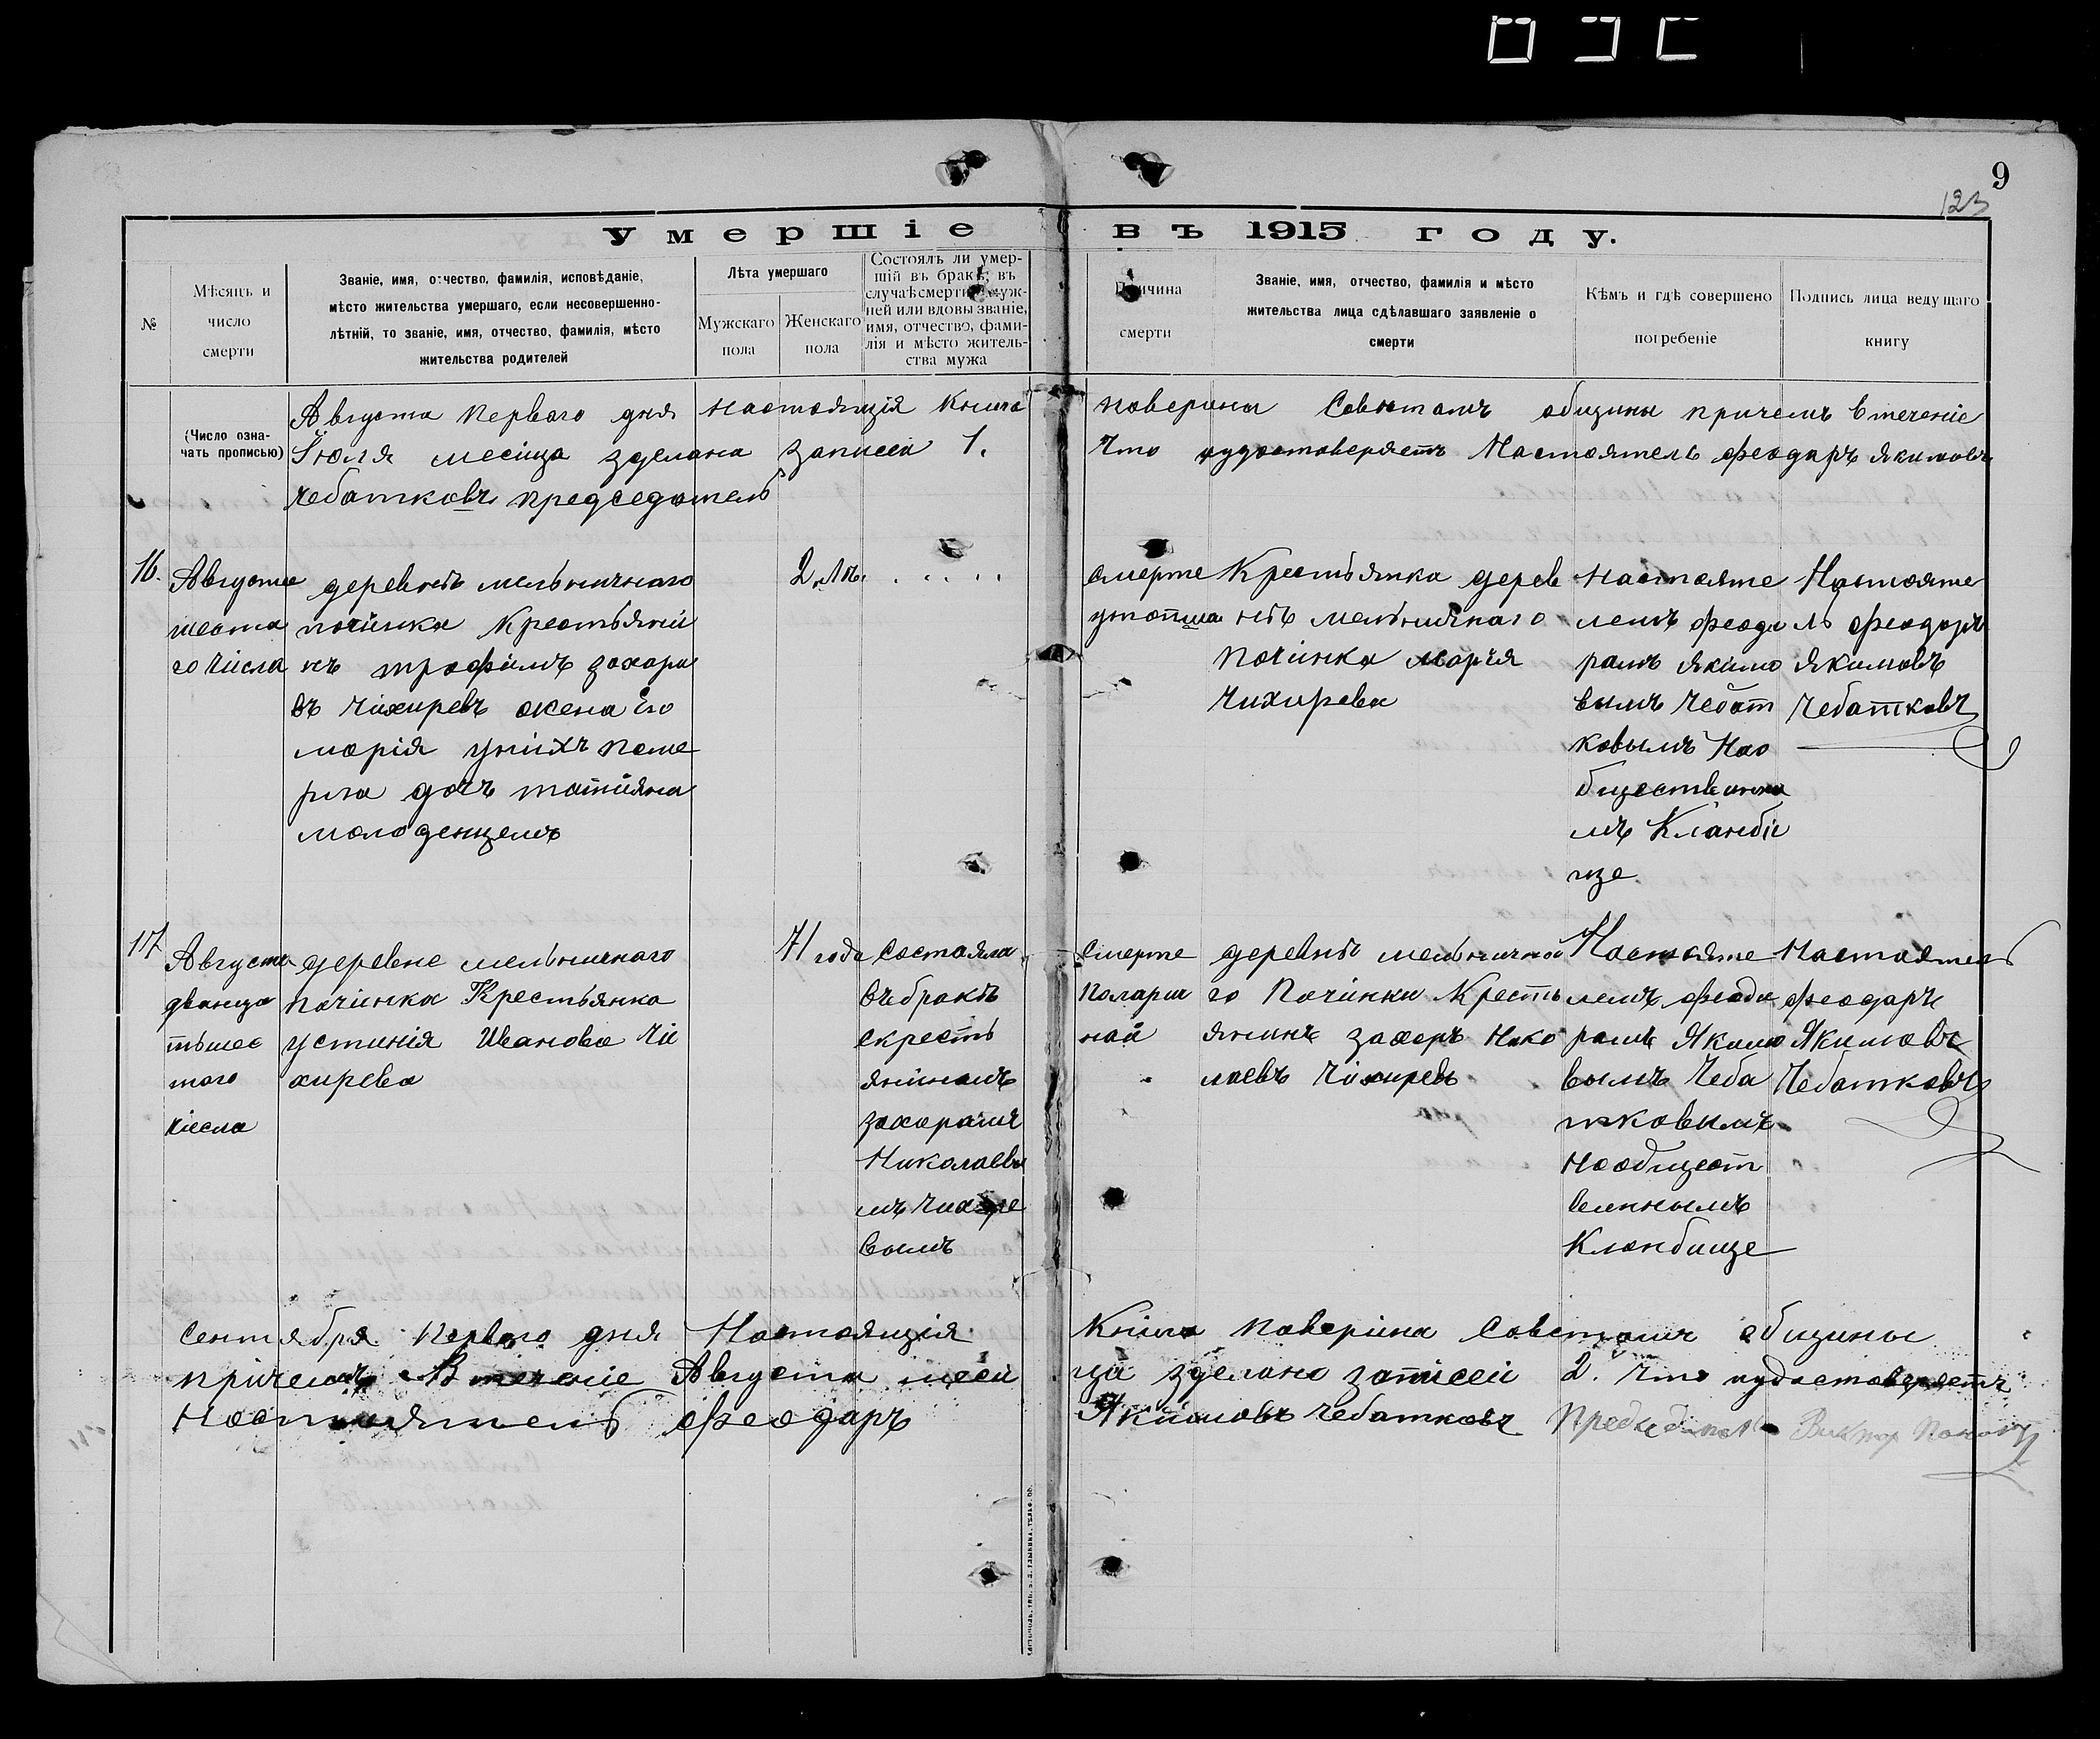 9
123
Умершіе въ 1915 году.
№
Мѣсяцъ и
число
смерти
Званіе, имя, отчество, фамилія, исповѣданіе,
мѣсто жительства умершаго, если несовершенно-
лѣтній, то званіе, имя, отчество, фамилія, мѣсто
жительства родителей
Лѣта умершаго
Мужскаго
пола
Женскаго
пола
Состоялъ ли умер-
шій въ бракѣ; въ
случаѣ смерти замуж-
ней или вдовы званіе,
имя, отчество, фами-
лія и мѣсто житель-
ства мужа
Причина
смерти
Званіе, имя, отчество, фамилія и мѣсто
жительства лица сдѣлавшаго заявленіе о
смерти
Кѣмъ и гдѣ совершено
погребеніе
Подпись лица ведущаго
книгу
(Число озна-
чать прописью)
Августа первого дня настоящія книга поверина Советомъ общины причемъ втечение
Іюля месяца зделана записей 1. Что удостоверяетъ Настоятель феодаръ якимовъ
чебатковъ председатель
16.
Августа
шеста
го числа
деревнѣ мельничного
починка крестьяни
нъ трофимъ захари
въ чихиревъ жена Его
марія унихъ поме
рла дочъ татияна
молоденцемъ
2 лѣ. . . . . .
смерте
утопша
Крестьянка дерев
нѣ мельничнаго
починка марія
чихирева
настояте
лемъ феода
ромъ якимо
вымъ чебат
ковымъ нао
бщественно
мъ Кланби
ще
Настояте
ль феодоръ
якимовъ
Чебатковъ
17
Августа
дванца
тьшес
того
числа
деревне мельничнаго
починка Крестьянка
устинія Иванова чи
хирева
71 года
состаяла
въ бракѣ
скресть
яниномъ
захарамъ
Николаевы
мъ чихире
вымъ
смерте
поларич
най
деревнѣ мельнично
го Починки Кресть
янинъ захаръ нико
лаевъ чихиревъ
Настояте
лемъ феода
ромъ Якимо
вымъ Чеба
тковымъ
Наобщест
венномъ
Кланбище
Настоятель
феодаръ
Якимовъ
Чебатковъ
Сентября первого дня Настоящія Книга поверина Советомъ общины
причемъ Втечение Августа меси ца зделано записей 2. Что удостоверяетъ
Настоятель феодаръ Якимовъ чебатковъ Председатель Виктор